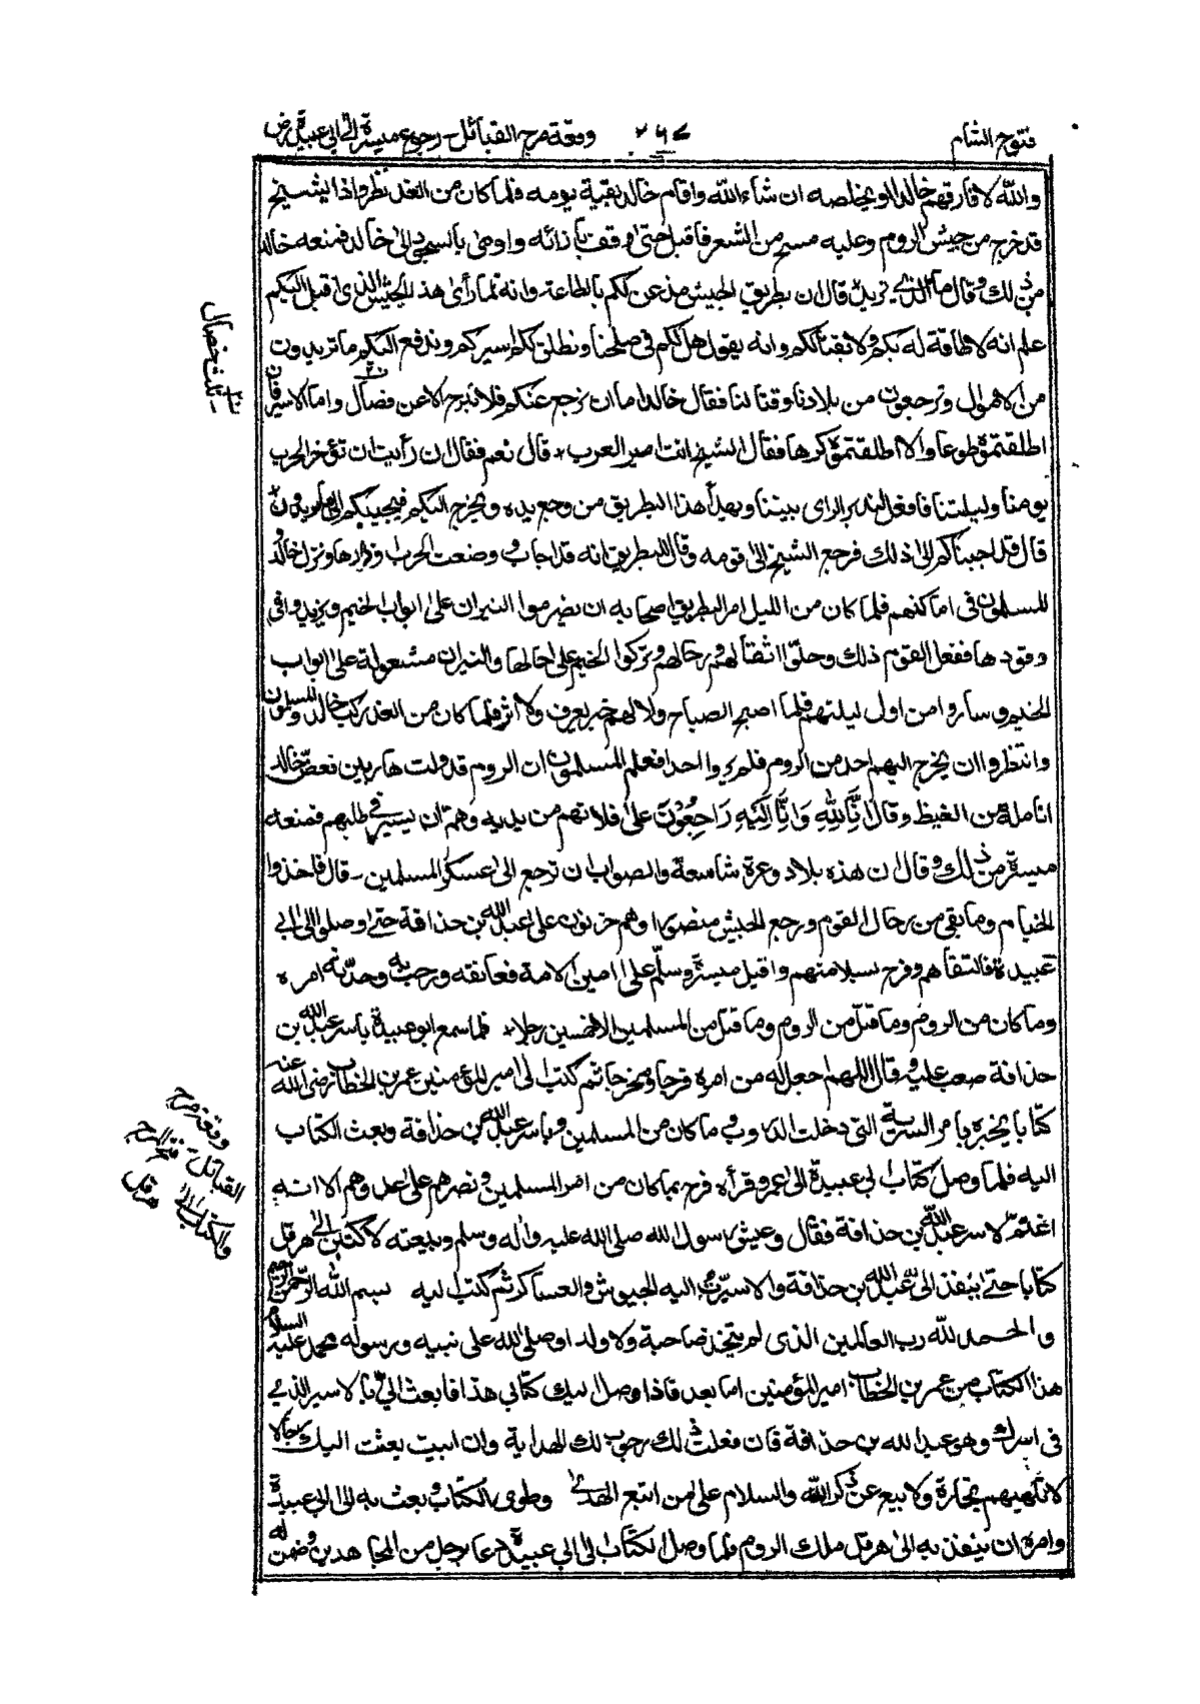 فتوح الشام
٢٦٧
وقعة مرج القبائل - رجوع ميسرة الى ابى عبيدة رض
والله لا فارقهم خالد او يخلصه ان شاء الله واقام خالد بقية يومه فلما كان من الغد نظر واذا بشيخ
قد خرج من جيش الروم وعليه مسح من الشعر فاقبل حتى وقف بازائه واومى بالسجود الى خالد فمنعه خالد
من ذلك وقال ما الذى تريد قال ان بطريق الجيش مذعن لكم بالطاعة وانه لما رأى هذا الجيش الذى اقبل اليكم
علم انه لا طاقة له بكم ولا بقتالكم وانه يقول هل لكم فى صلحنا ونطلق لكم اسيركم وندفع اليكم ما تريدون
من الاموال وترجعون من بلادنا وقتالنا فقال خالد اما ان نرجع عنكم فلا نبرح الا عن فصال واما الاسير فان
اطلقتموه طوعا والا اطلقتموه كرها فقال الشيخ انت امير العرب قال نعم فقال ان رأيت ان تؤخر الحرب
يومنا وليلتنا فافعل لندبر الراى بيننا ويهدأ هذا البطريق من وجع يده ويخرج اليكم فيجيبكم الى ما تريدون
قال قد اجبناكم الى ذلك فرجع الشيخ الى قومه وقال للبطريق انه قد اجاب ووضعت الحرب اوزارها ونزل خالد
والمسلمون فى اماكنهم فلما كان من الليل امر البطريق اصحابه ان يضرموا النيران على ابواب الخيم ويزيدوا فى
وقودها ففعل القوم ذلك وحلوا اثقالهم ورحالهم وتركوا الخيم على حالها والنيران مشعولة على ابواب
الخيم وساروا من اول ليلتهم فلما اصبح الصباح ولا لهم خبر يعرف ولا اثر فلما كان من الغد ركب خالد والمسلمون
وانتظروا ان يخرج اليهم احد من الروم فلم يروا احدا فعلم المسلمون ان الروم قد ولت هاربين فعض خالد
انامله من الغيظ وقال انا لله وانا اليه راجعون على فلاتهم من يديه وهم ان يسير فى طلبهم فمنعه
ميسرة من ذلك وقال ان هذه بلاد وعرة شاسعة والصواب ان ترجع الى عسكر المسلمين - قال فاخذوا
الخيام وما بقى من رحال القوم ورجع الجيش منصورا وهم حزنون على عبد الله بن حذافة حتى وصلوا الى ابى
عبيدة فالتقاهم وفرح بسلامتهم واقبل ميسرة وسلم على امين الامة فعانقه ورحب به وحدثه امره
وما كان من الروم وما قتل من الروم وما قتل من المسلمين الا خمسين رجلا فلما سمع ابو عبيدة باسر عبد الله بن
حذافة صعب عليه وقال اللهم اجعل له من امره فرجا ومخرجا ثم كتب الى امير المؤمنين عمر بن الخطاب رضى الله عنه
كتابا يخبره بامر السرية التى دخلت الدروب وما كان من المسلمين وباسر عبد الله بن حذافة وبعث الكتاب
اليه فلما وصل كتاب ابى عبيدة الى عمر وقرأه فرح بما كان من امر المسلمين ونصرهم على عدوهم الا انه
اغتم لاسر عبد الله بن حذافة فقال وعيش رسول الله صلى الله عليه واله وسلم وبيعته لاكتبن الى هرقل
كتابا حتى ينفذ الى عبد الله بن حذافة والا سيرت اليه الجيوش والعساكر ثم كتب اليه بسم الله الرحمن الرحيم
والحمد لله رب العالمين الذى لم يتخذ صاحبة ولا ولدا وصلى الله على نبيه ورسوله محمد عليه السلام
هذا الكتاب من عمر بن الخطاب امير المؤمنين اما بعد فاذا وصل اليك كتابى هذا فابعث الى بالاسير الذى
فى اسرك وهو عبد الله بن حذافة فان فعلت ذلك رجوت لك الهداية وان ابيت بعثت اليك رجالا
لا تلهيهم تجارة ولا بيع عن ذكر الله والسلام على من اتبع الهدى وطوى الكتاب وبعث به الى ابى عبيدة
وامره ان ينفذ به الى هرقل ملك الروم فلما وصل الكتاب الى ابى عبيدة دعا برجل من المجاهدين وضمن له
ثلث خصال
وقعة مرج
القبائل - فتح المرج
والكتاب الى هرقل